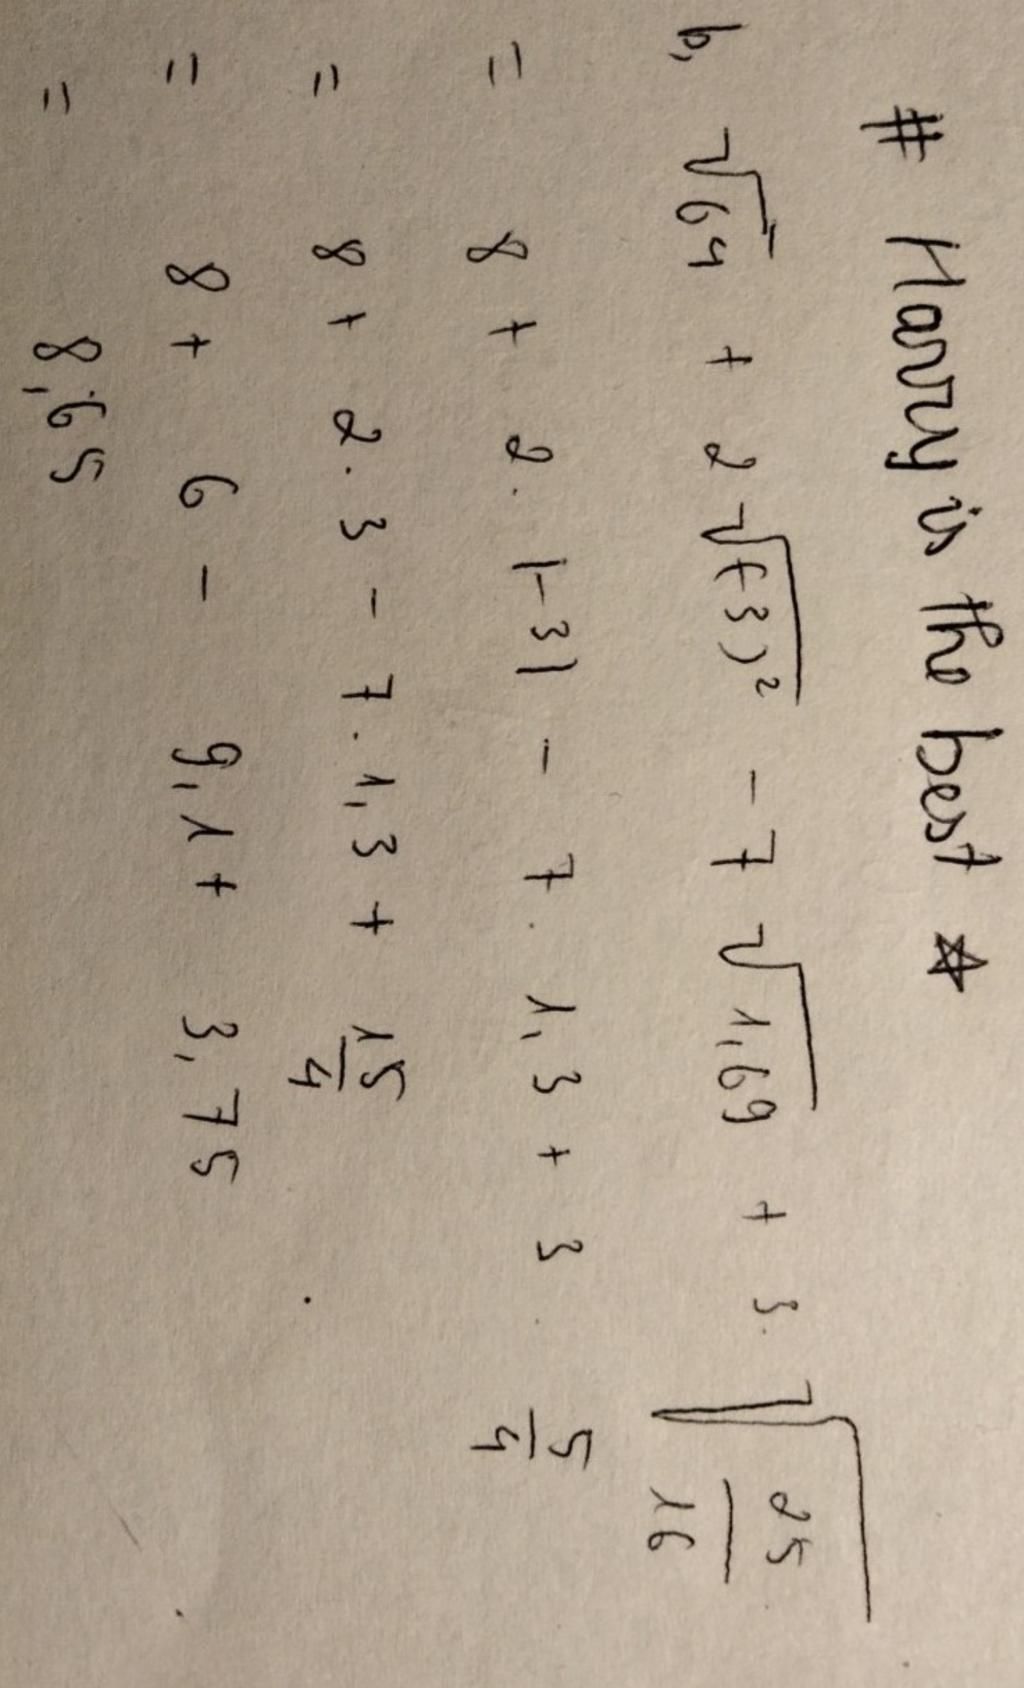 # Harry is the best ☆
b, √64 + 2 √(-3)² - 7 √1,69 + 3. √25/16
= 8 + 2. |-3| - 7. 1,3 + 3. 5/4
= 8 + 2. 3 - 7. 1,3 + 15/4
= 8 + 6 - 9,1 + 3,75
= 8,65